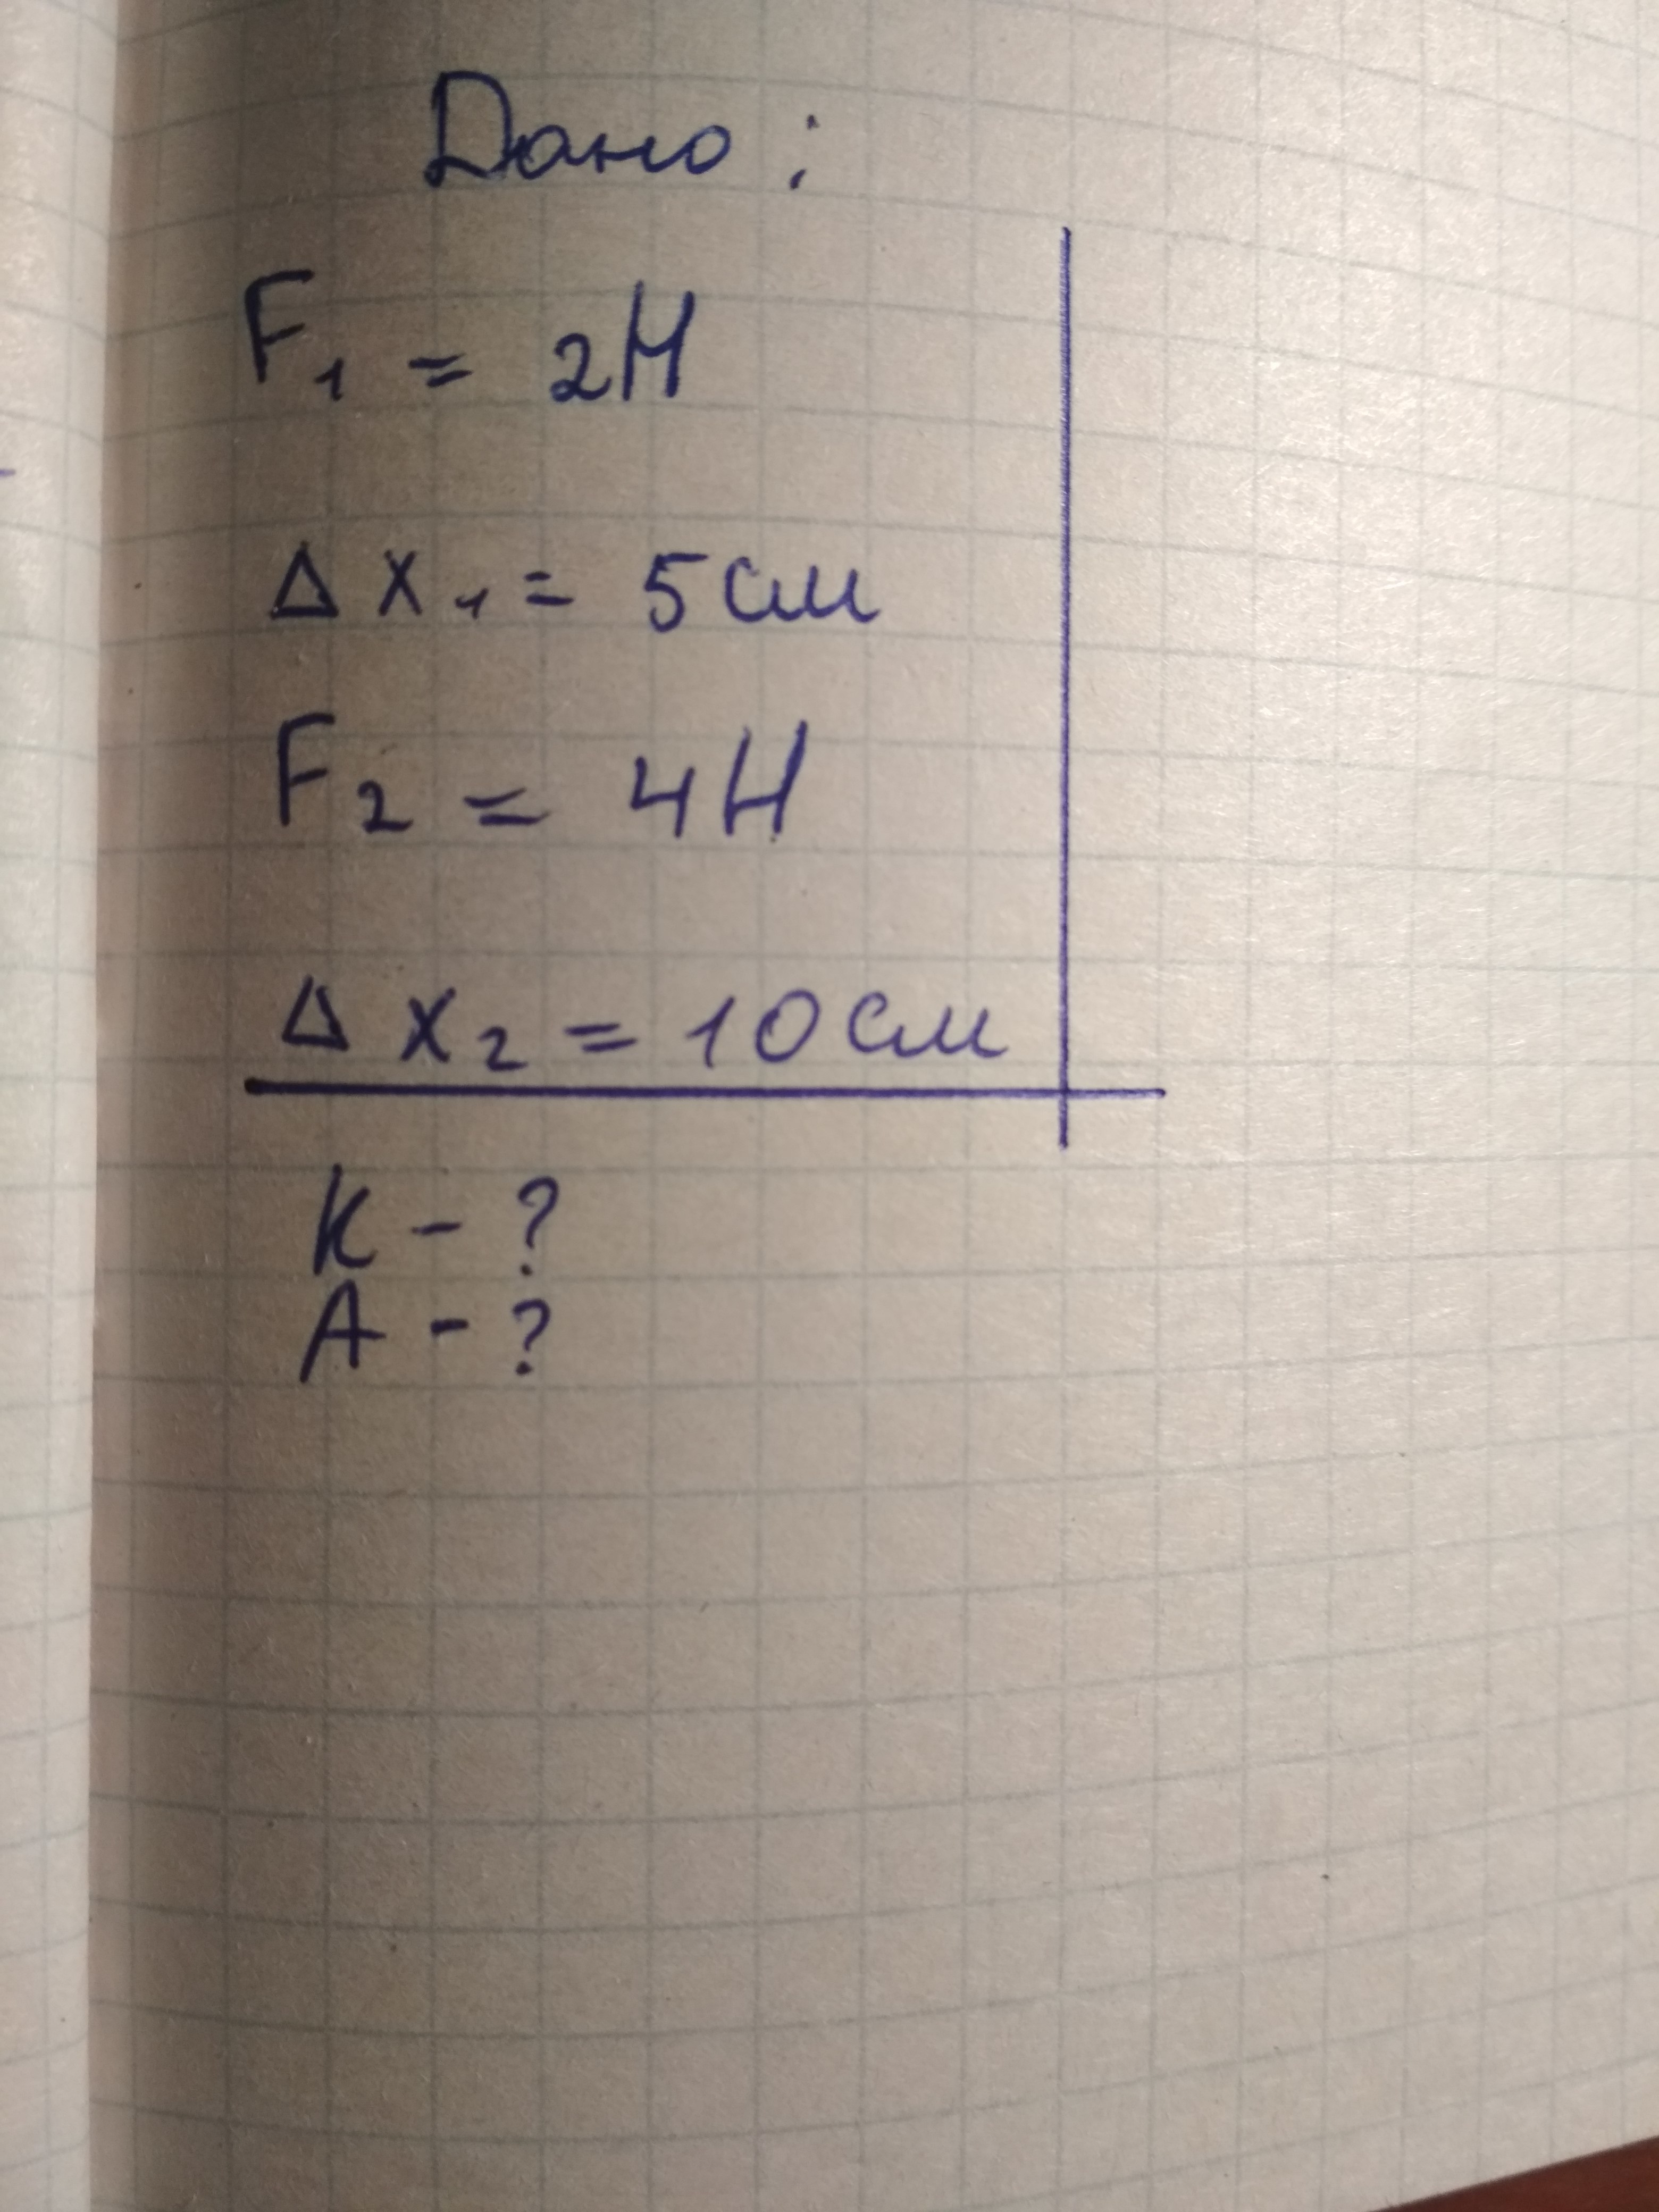 Дано:
F₁ = 2Н
Δx₁ = 5см
F₂ = 4Н
Δx₂ = 10см
K - ?
A - ?